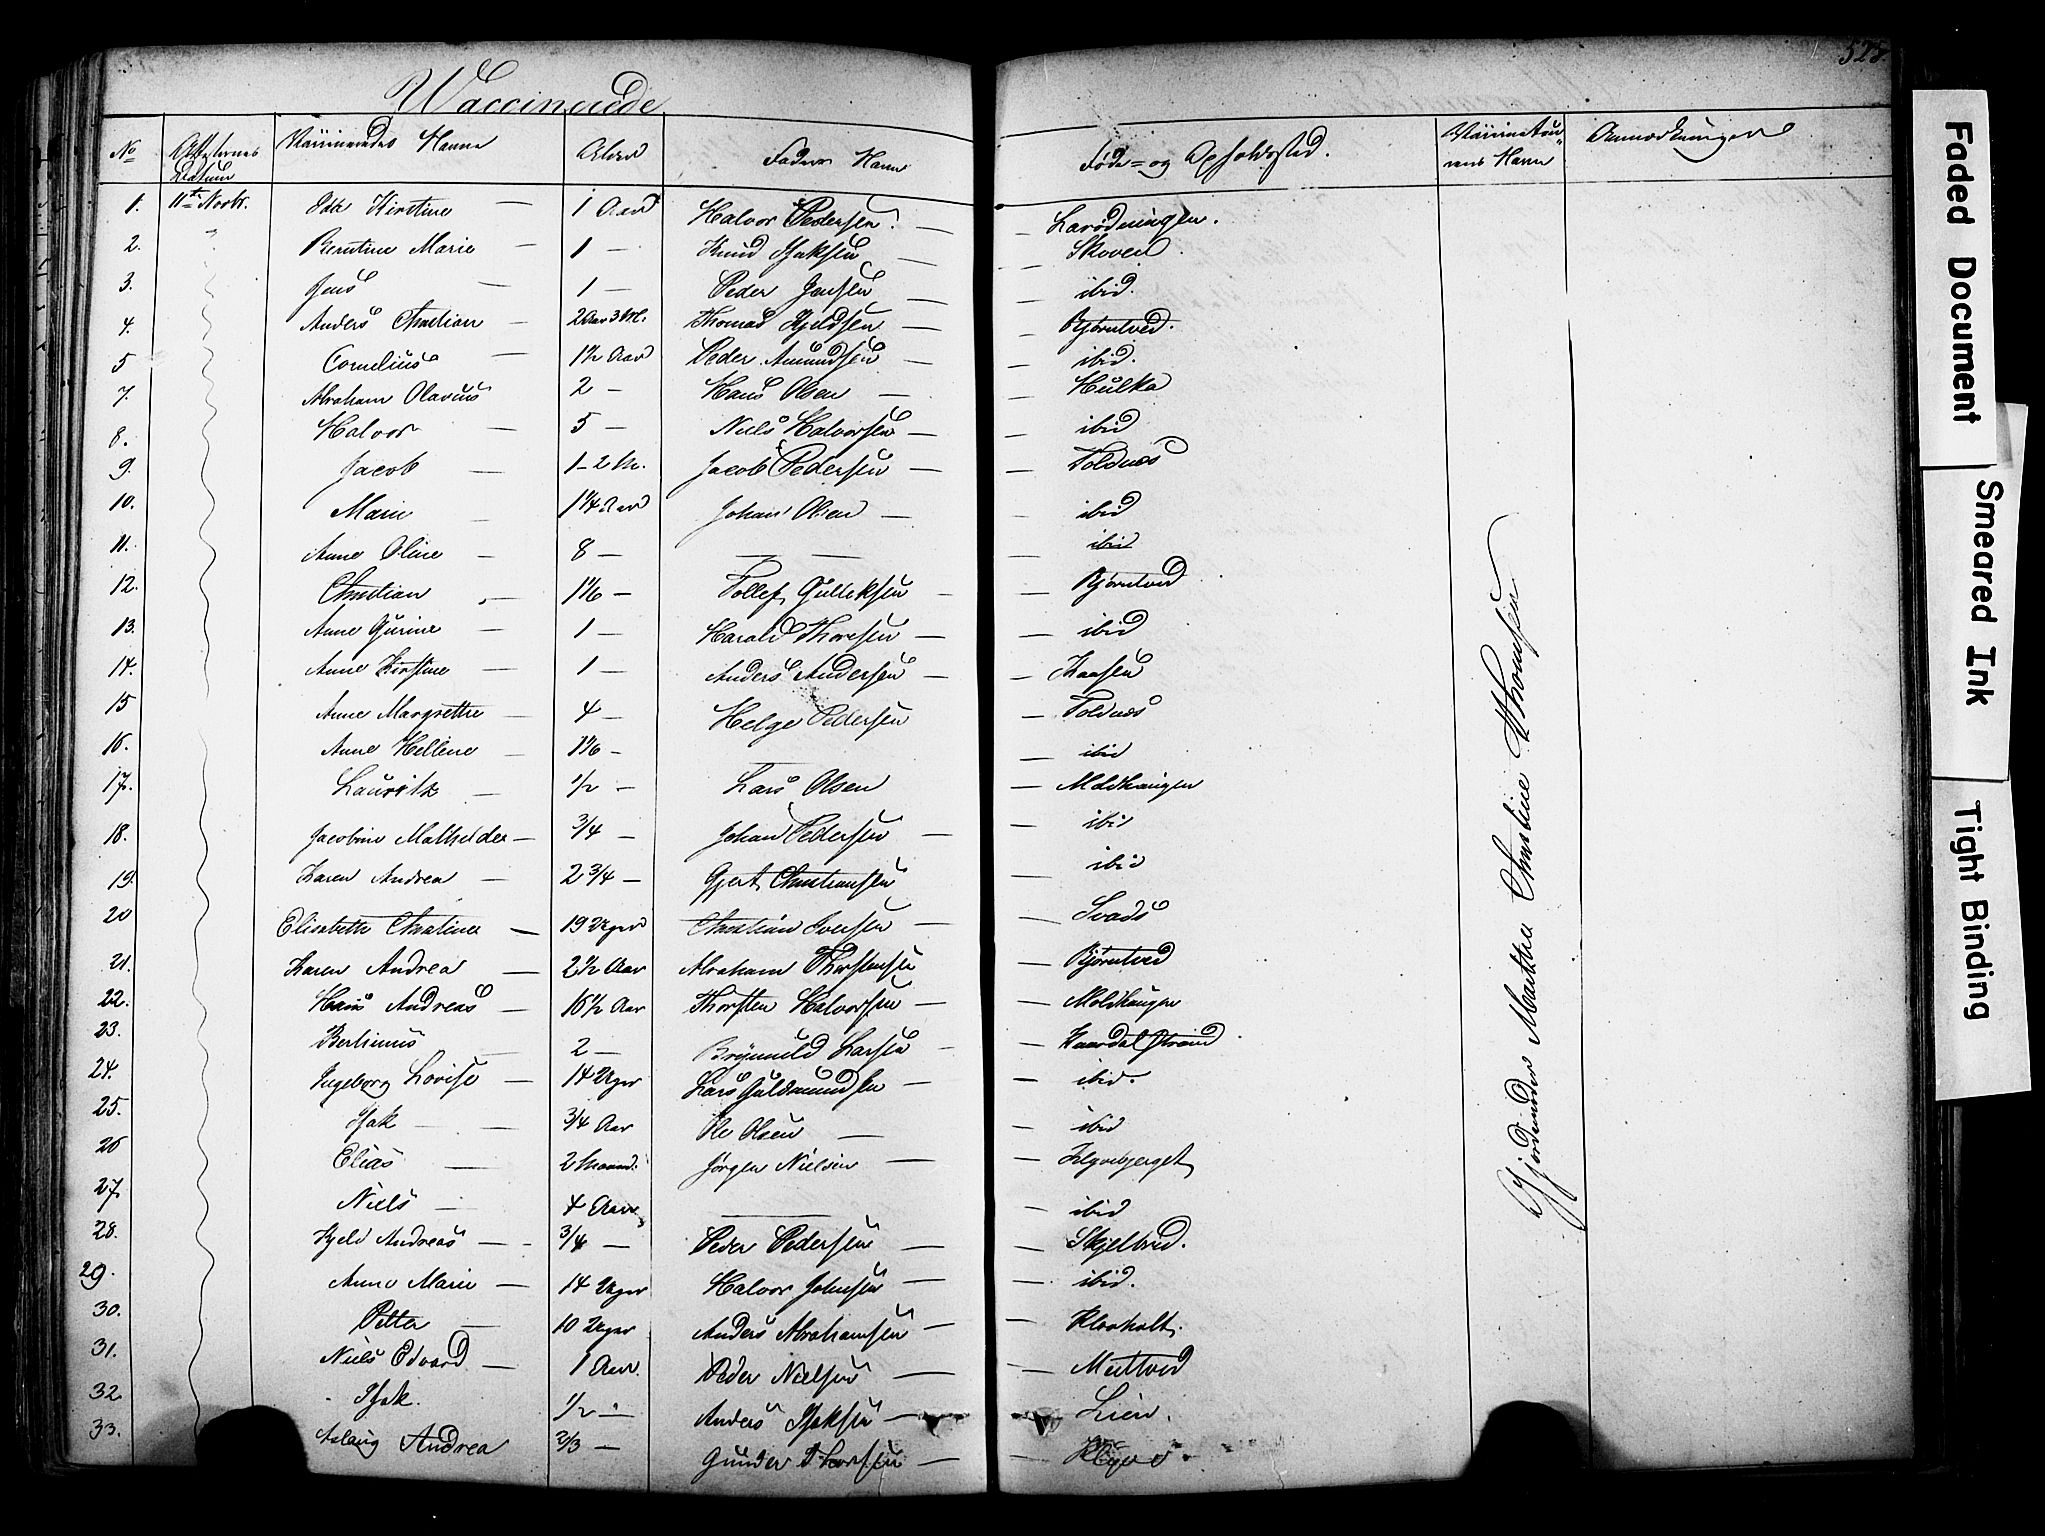 528.
Waccinerede
No Attesternes Datum Vaccineredes Navne Alder Faders Navn Føde- og Opholdssted. Vaccinateurens Navn Anmærkninger
1. 11te Novbr. Kirstine — 1 Aar Halvor Pedersen. — — Lavødningen.
2. " Berntine Marie — 1 — Knud Isaksen — — Skoven.
3. Jens — 1 — Peder Jensen — — ibid.
4. Anders Christian — 2 Aar 3 M. Thomas Kjeldsen — — Bjørntved.
5 Cornelius — 1½ Aar Peder Amundsen — — ibid.
7. Abraham Olavus 2 — Hans Olsen — — Hulka
8. Halvor — 5 — Niels Halvorsen — — ibid
9. Jacob — 1 - 2 M. Jacob Pedersen — — Foldnæs
10. Marie — 1¼ Aar Johan Olsen — — ibid
11. Anne Oline — 8 — — — — ibid
12. Christian — 1⅙ — Tollef Gulliksen — — Bjørntved
13. Anne Gurine — 1 — Harald Thoresen — — ibid
14. Anne Kirstine — 1 — Anders Andersen — — Kaasen
15 Anne Margrethe — 4 — Helge Pedersen — Foldnæs
16. Anne Hellene — 1⅙ — — ibid
17. Lauritz — ½ — Lars Olsen — Moldhaugen
18. Jacobine Mathilde — ¾ — Johan Pedersen — — ibid
19. Karen Andrea — 2¾ — Gjert Christiansen — ibid
20 Elisabeth Christine — 19 Uger Christian Iversen — — Svads
21. Karen Andrea — 2½ Aar Abraham Thorstensen — Bjørntved
22. Hans Andreas — 16½ Aar Thorsten Halvorsen — — Moldhaugen
23. Bertinius 2 — Brynild Larsen — — Strand.
24. Ingeborg Lovise — 14 Uger Lars Guldmundsen — — ibid.
25. Isak — — ¾ Aar Ole Olsen — — ibid
26 Elias — 2 Maand. Jørgen Nielsen — —
27. Niels — 4 Aar — — ibid
28. Kjeld Andreas — ¾ — Peder Pedersen — — Skjelbred.
29. Anne Marie — 14 Uger Halvor Johnsen — — ibid.
30. Petter — 10 Uger Anders Abrahamsen — — Klovholt.
31. Niels Edvard — 1 Aar. Peder Nielsen — — Meltved
32 Isak. ½ — Anders Isaksen — — Lien.
33. Aslaug Andrea ⅔ — Gunder Thorsen — —
Gjordemoder Marthea Christine Thomsen
Faded Document
Smeared Ink
Tight Binding